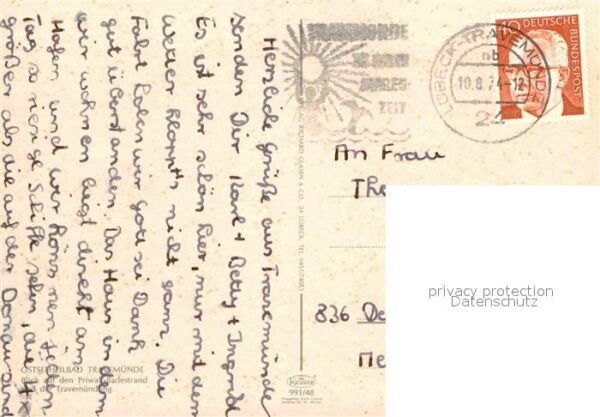 Herzliche Grüße aus Travemünde
senden Dir Karl + Betty + Ingrid
Es ist sehr schön hier, nur mit dem
Wetter klappts nicht ganz. Die
Fahrt haben wir gott sei Dank
gut überstanden. Das Haus in dem
wir wohnen liegt direkt am
Hafen und wir können jeden
Tag so riesige Schiffe sehen, die
größer als die auf der Donau sind
TRAVEMÜNDE
ZU JEDER
JAHRES-
ZEIT
LÜBECK-TRAVEMÜNDE
nb
10.8.74-12
24
40 DEUTSCHE
BUNDESPOST
An Frau
The
836 De
Me
privacy protection
Datenschutz
VERLAG RICHARD GLASEN & CO. 24 LÜBECK, TEL.
OSTSEEHEILBAD TRAVEMÜNDE
Blick auf den Privat-Badestrand
und die Travemündung
KRÜGER
991/48